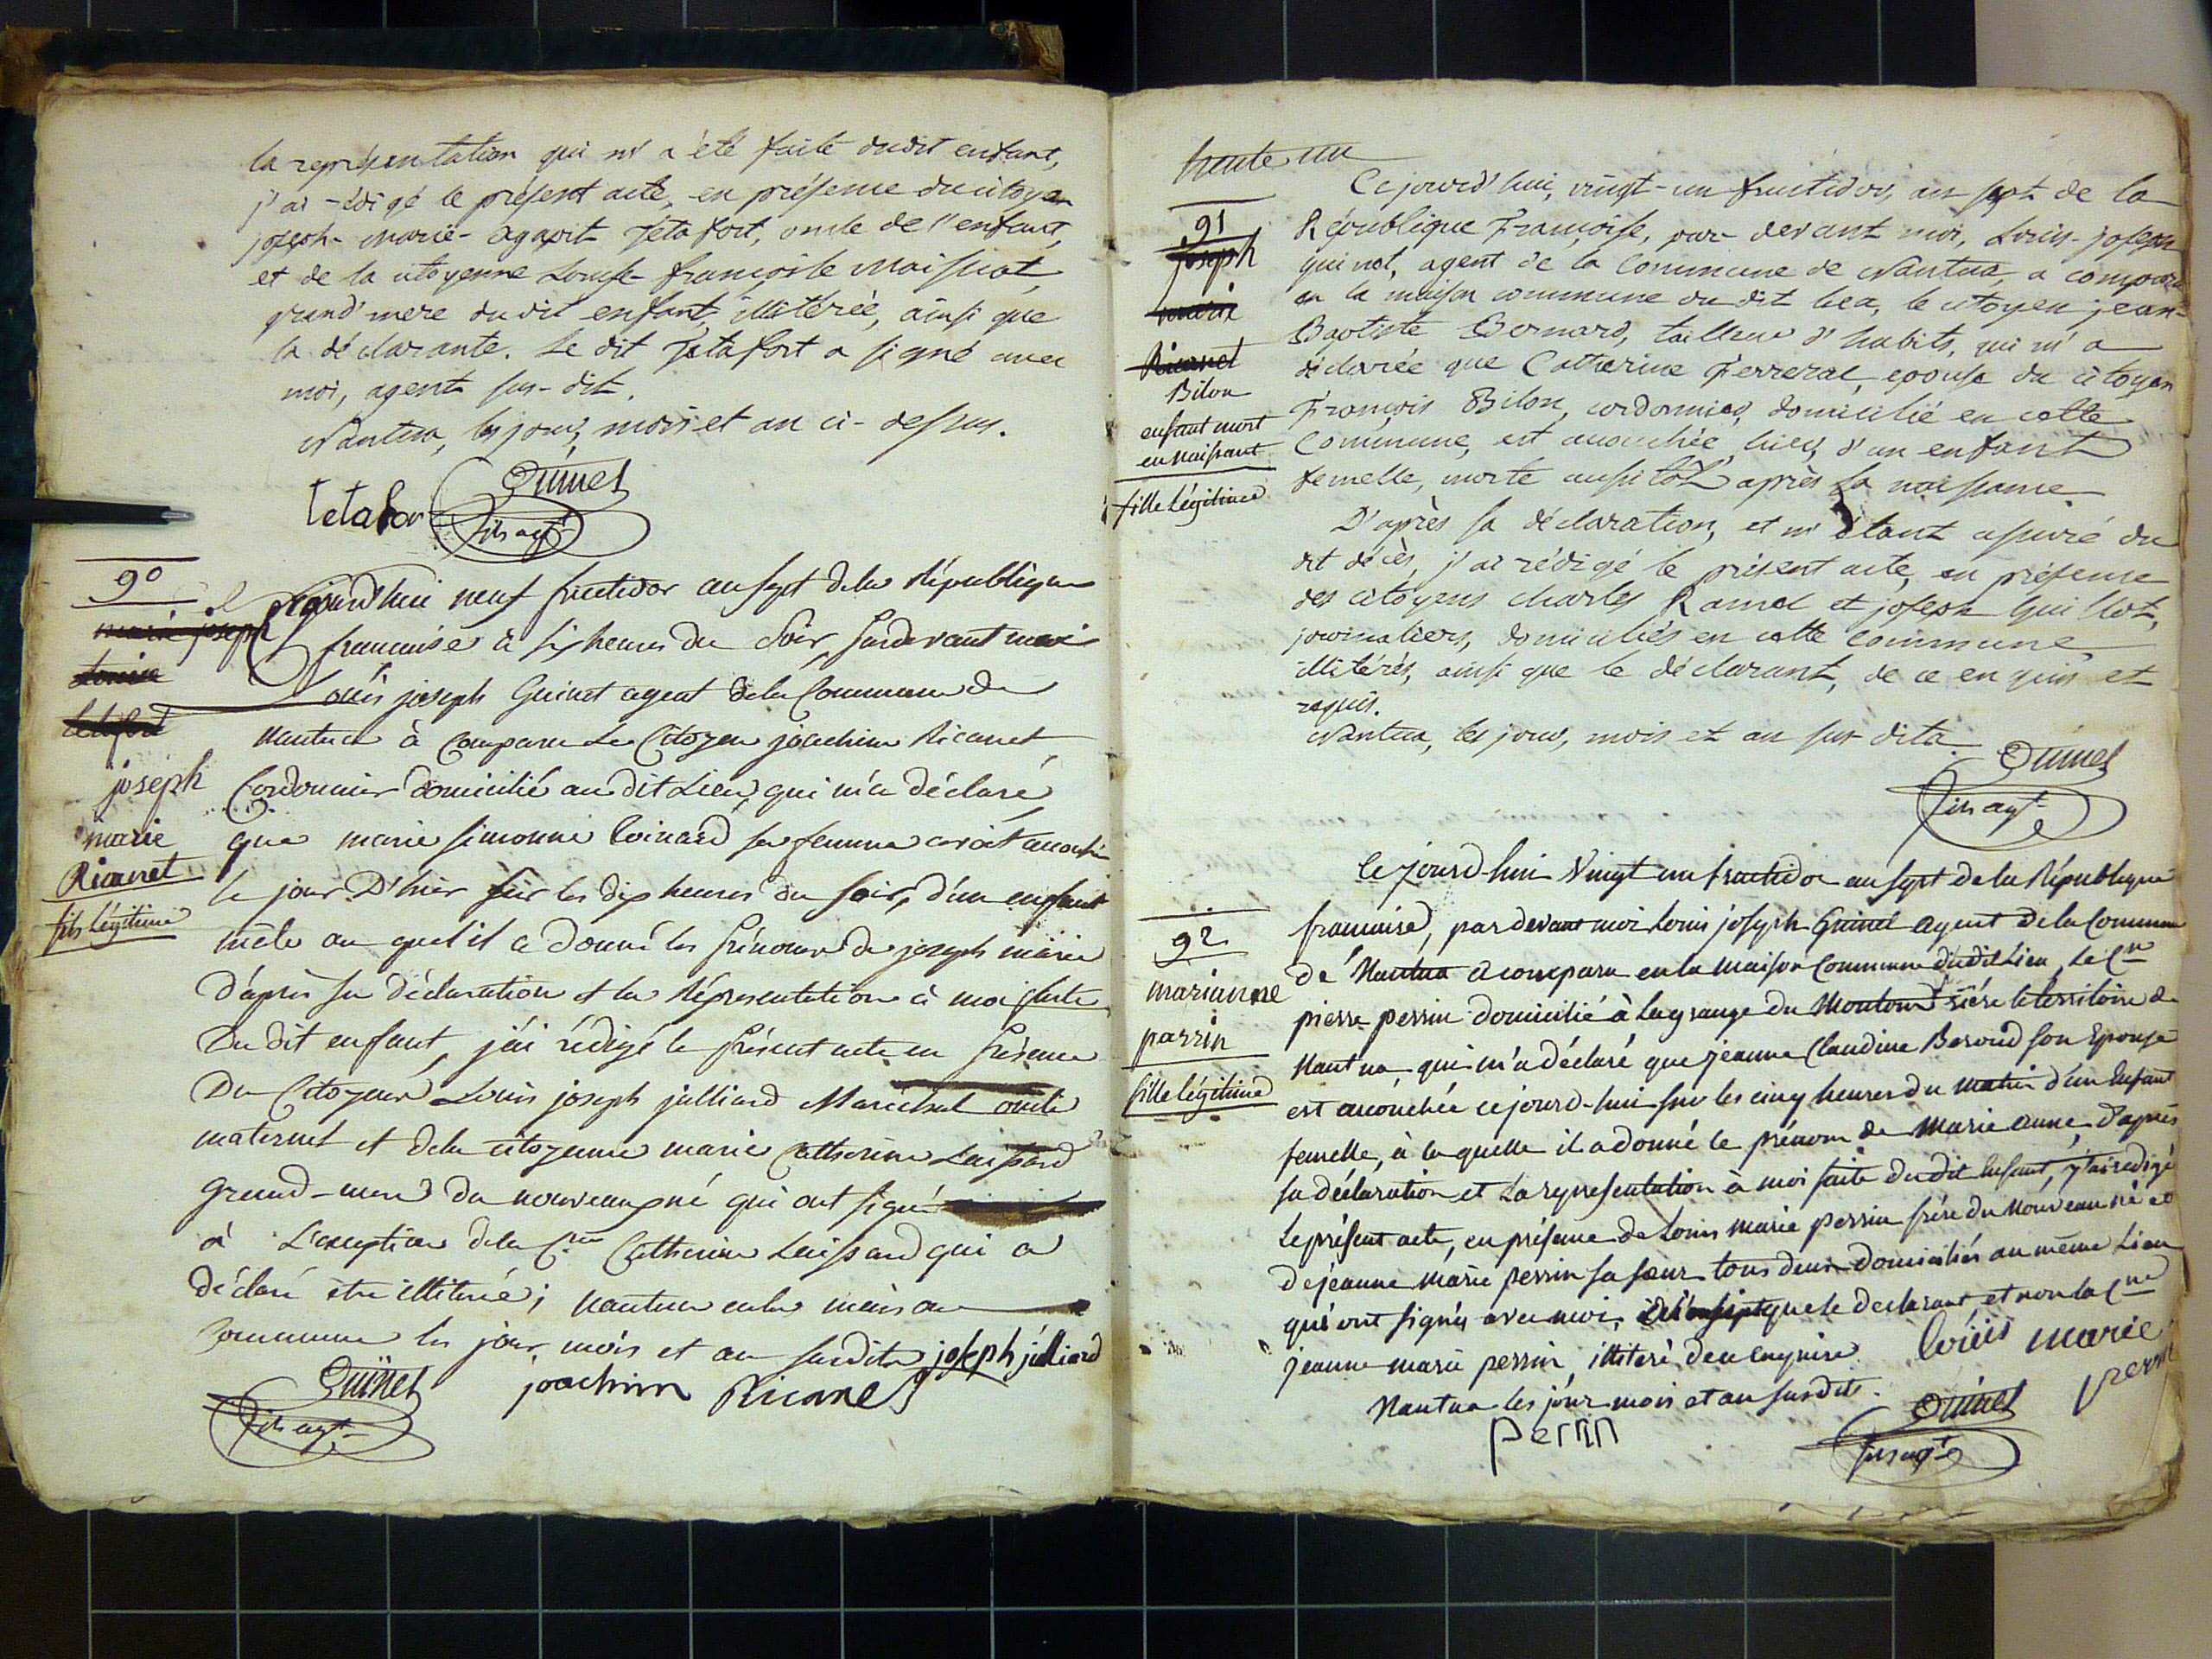 la représentation qui m'a été faite dudit enfant,
j'ai rédigé le présent acte, en présence du citoyen
joseph-marie-agapit Tétafort, oncle de l'enfant,
et de la citoyenne Louise-françoise Maissiat,
grand'mere du dit enfant, illitérée, ainsi que
la déclarante. Le dit Tétafort a signé avec
moi, agent sus-dit.
Nantua, les jour, mois et an ci-dessus.
Tetafor
Guinet
fils agt
90
marie joseph
Louise
tetafort
joseph
marie
Ricanet
fils légitime
aujourd'hui neuf fructidor an sept de la République
francaise à six heures du Soir, pardevant moi
Louis joseph Guinet agent de la Commune de
Nantua à Comparu Le Citoyen joachim Ricanet
Cordonnier domicilié au dit Lieu, qui m'a déclaré
que marie simonne Coinard sa femme avoit accouché
le jour D'hier sur les dix heures du soir, d'un enfant
mâle au quel il a donné les Prénoms de joseph marie
D'après sa déclaration et la Représentation à moi faite
Du dit enfant, j'ai rédigé le présent acte en présence
Du Citoyen Louis joseph julliard Maréchal oncle
maternel et de la citoyenne marie Catherine Laissard
grand-mere du nouveau né qui ont signé
à L'exception de la Cne Catherine Laissard qui a
déclaré être illiterée; Nantua en la maison
Commune les jour, mois et an susdits joseph júlliard
Guinet
fils agt
joachim Ricanet
trente un
91
Joseph
marie
Ricanet
Bilon
enfant mort
en naissant
fille légitime
Ce jourd'hui, vingt-un fructidor, an sept de la
République Françoise, par-devant moi, Louis-joseph
guinet, agent de la Commune de Nantua, a comparu
en la maison commune du dit lieu, le citoyen jean-
Baptiste Bernard, tailleur d'habits, qui m'a
déclarée que Catherine Ferreral, epouse du citoyen
François Bilon, cordonnier, domicilié en cette
Commune, est accouchée, hier, d'un enfant
femelle, morte aussitôt après sa naissance
D'après sa déclaration, et m'étant assuré du
dit décès, j'ai rédigé le présent acte, en présence
des citoyens charles Ramel et joseph Guillot,
journaliers, domiciliés en cette commune,
illitérés, ainsi que le déclarant, de ce enquis et
requis.
Nantua, les jour, mois et an sus-dits.
Guinet
fils agt
92
marianne
parrin
fille légitime
Ce jourd-hui Vingt un fructidor an sept de la République
francaise, par devant moi Louis joseph Guinet agent de la Commune
de Nantua a comparu en la maison Commune dudit Lieu, Le Cn
pierre perrin domicilié à Lagrange du Moutoux rière le territoire de
Nantua, qui m'a déclaré que jeanne Claudine Beroud son Epouse
est accouchée cejourd-hui sur les cinq heures du matin d'un Enfant
femelle, à la quelle il a donné le prénom de Marie anne, D'après
sa déclaration et La representation à moi faite du dit Enfant, j'ai redigé
Le présent acte, en présence de Louis Marie perrin frère du Nouveau né et
de jeanne Marie perrin sa sœur tous deux domiciliés au même Lieu
qui ont signés avec moi, que le declarant, et non la Cne
jeanne marie perrin, illiteré de ce enquise
Nantua les jour mois et an susdits.
loüis marie
perrin
perrin
Guinet
fils agt